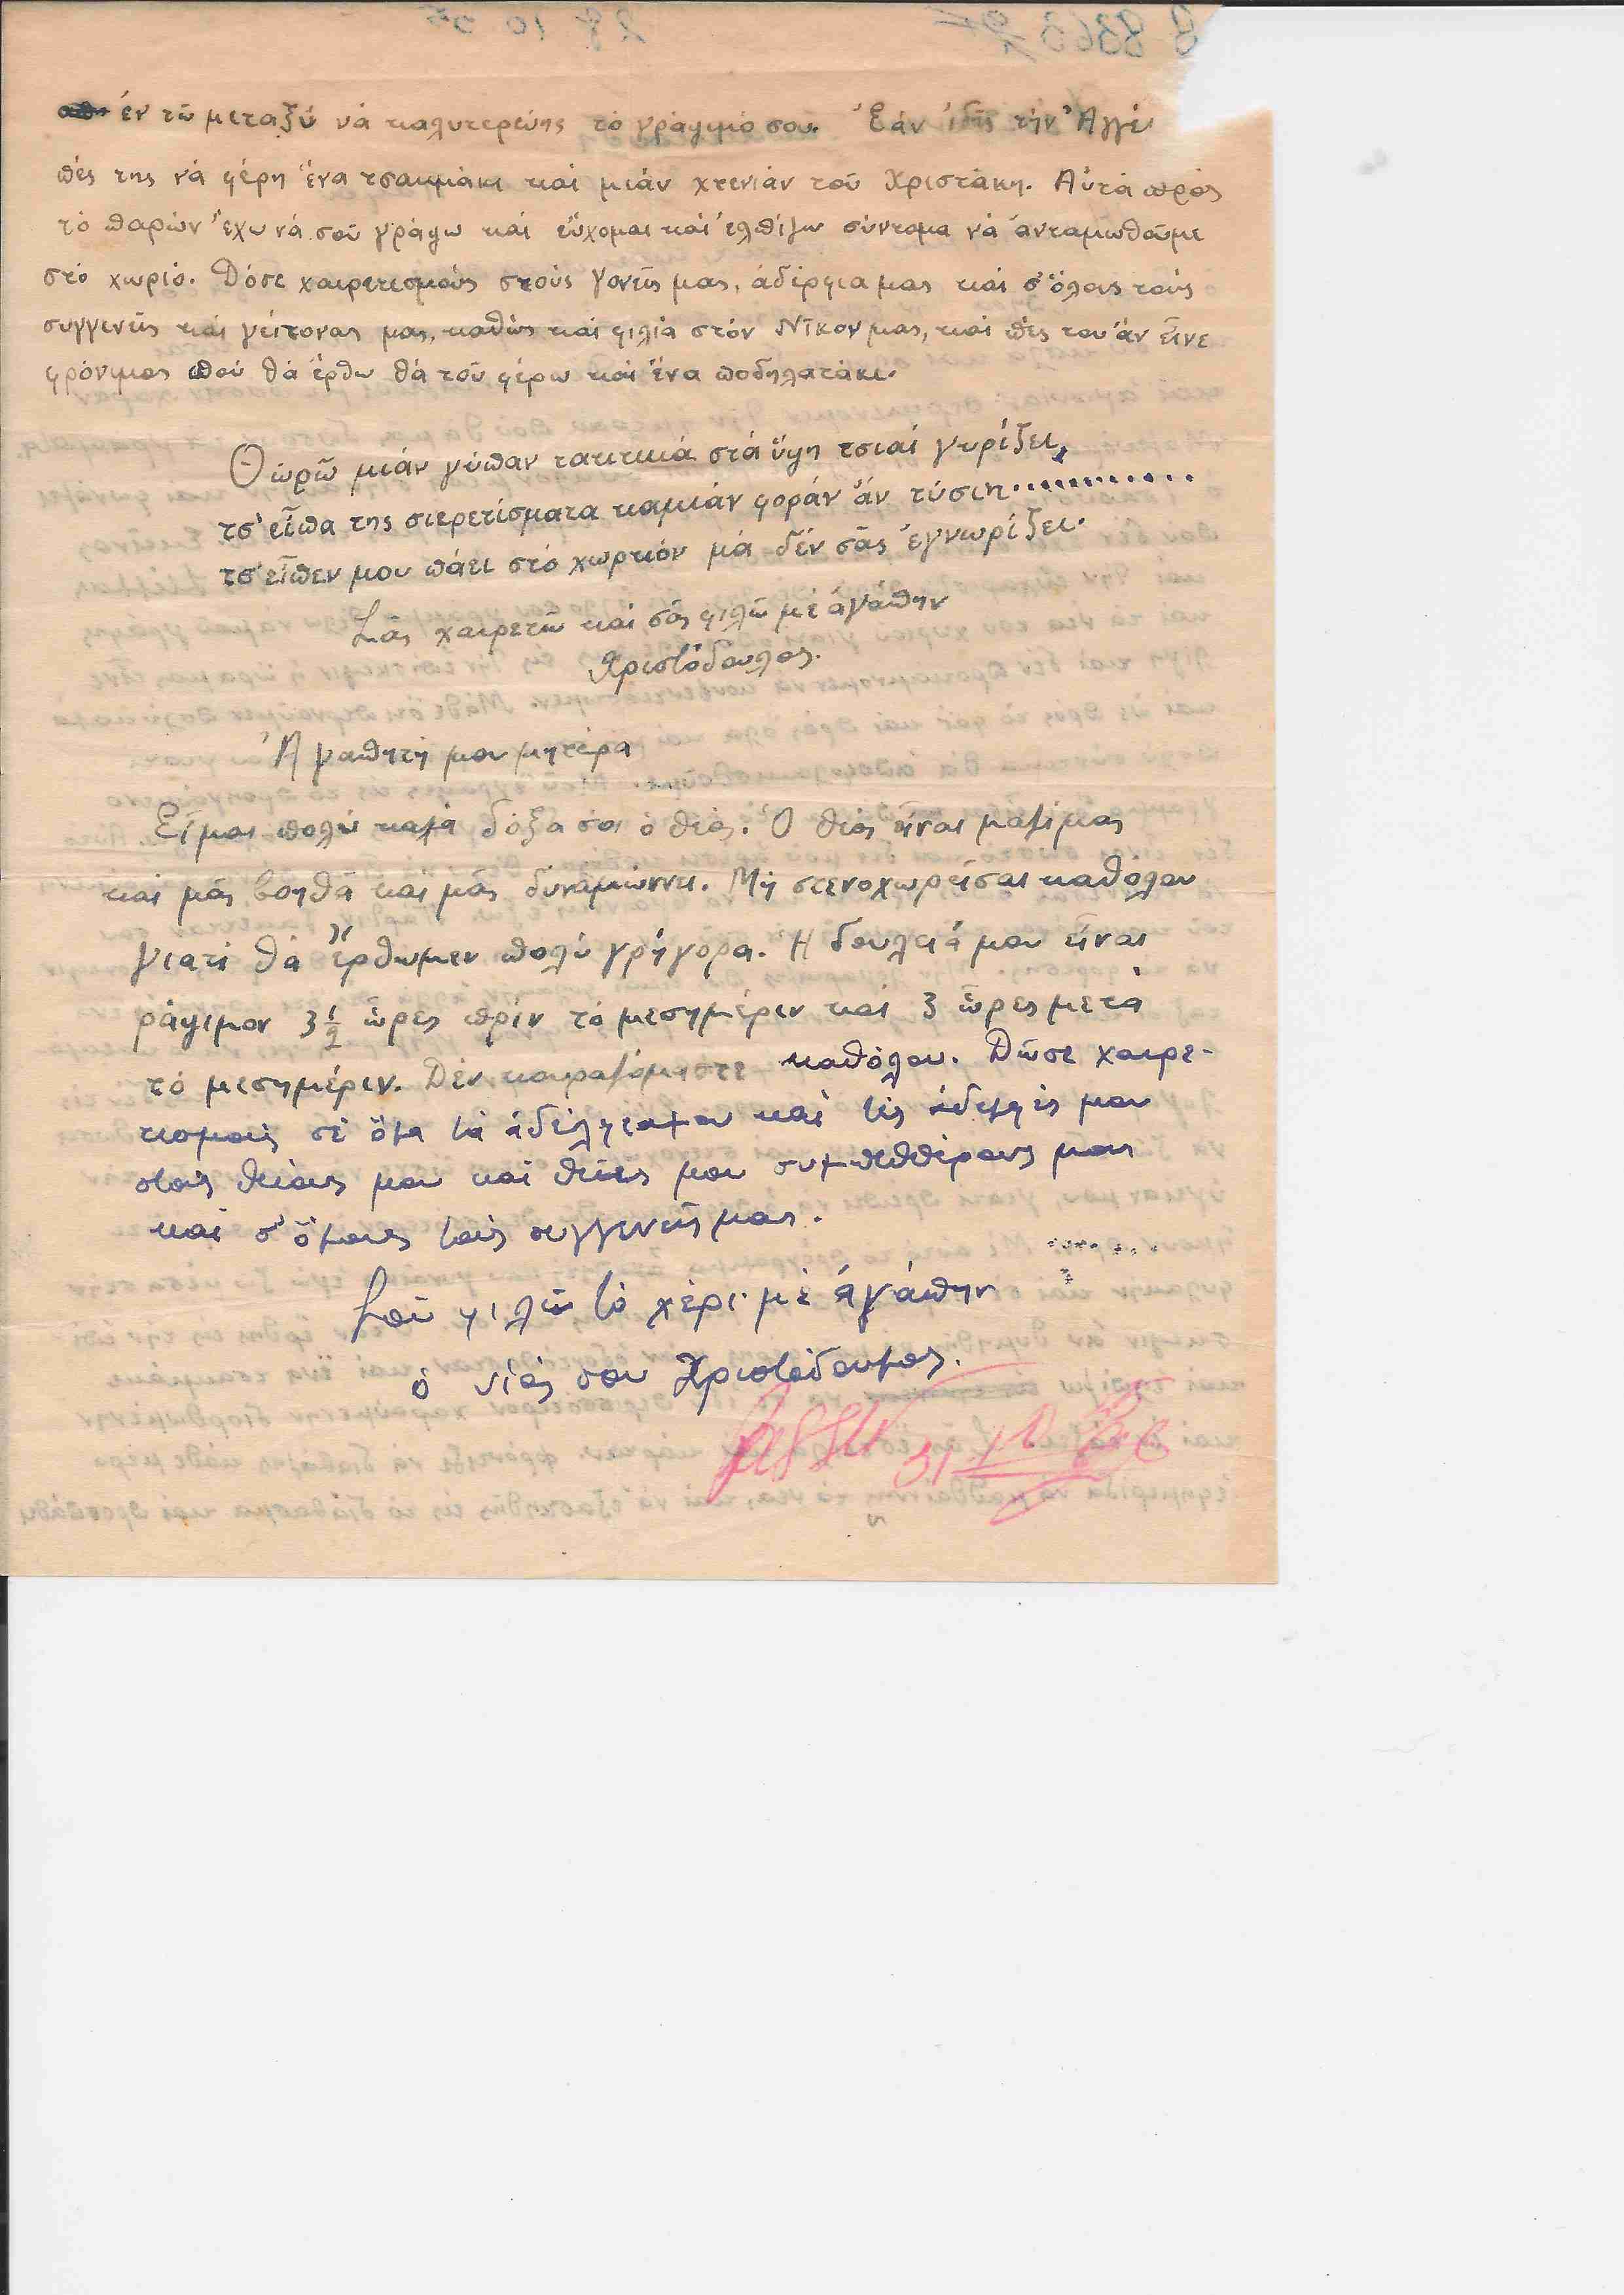 ἐν τῶ μεταξύ νά καλυτερεύης τό γράψιμό σου. Ἐάν ἰδῆς τήν Ἀγγέ
πές της νά φέρη ἕνα τσακμάκι καί μιάν χτενιάν τοῦ Χριστάκη. Αὐτά πρός
τό παρών ἔχω νά σοῦ γράψω καί εὔχομαι καί ἐλπίζω σύντομα νά ἀνταμωθοῦμε
στό χωριό. Δόσε χαιρετισμούς στούς γονεῖς μας, ἀδέρφια μας καί σ' ὅλους τούς
συγγενεῖς καί γείτονας μας, καθώς καί φιλιά στόν Νῖκον μας, καί πές του ἄν εἶνε
φρόνιμος πού θά ἔρθω θά τοῦ φέρω καί ἕνα ποδηλατάκι.
Θωρῶ μιάν γύπαν τακτικά στά ὕψη τσιαί γυρίζει,
τσ' εἶπα της σιερετίσματα καμιάν φοράν ἄν τύσιη............
τσ' εἶπεν μου πάει στό χωρκόν μά δέν σᾶς ἐγνωρίζει.
Σᾶς χαιρετῶ καί σᾶς φιλῶ μέ ἀγάπην
Χριστόδουλος.
Ἀγαπητή μου μητέρα
Εἶμαι πολύ καλά δόξα σοι ὁ θεός. Ὁ θεός εἶναι μαζί μας
καί μᾶς βοηθᾶ καί μᾶς δυναμώννει. Μή στενοχωρεῖσαι καθόλου
γιατί θά ἔρθωμεν πολύ γρήγορα. Η δουλειά μου εἶναι
ράψιμον 3 1/2 ὧρες πρίν τό μεσημέριν καί 3 ὧρες μετά
τό μεσημέριν. Δέν κουραζόμαστε καθόλου. Δῶσε χαιρε-
τισμούς σέ ὅλα τά ἀδέλφια μου καί τές ἀδελφές μου
στούς θείους μου καί θεῖες μου συμπεθθέρους μας
καί σ' ὅλους τούς συγγενεῖς μας.
Σοῦ φιλῶ τό χέρι μέ ἀγάπην
ὁ υἱός σου Χριστόδουλος.